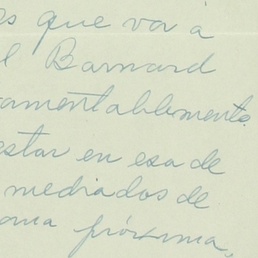 os que va á
l Barnard
lamentablemente
estar en esa de
mediados de
próxima,